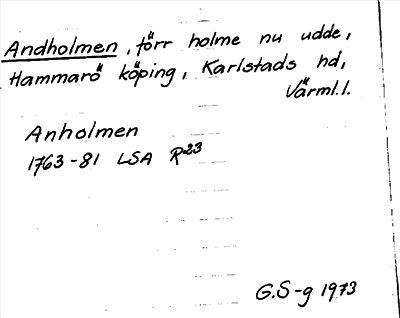 Andholmen, förr holme nu udde,
Hammarö köping, Karlstads hd,
Värml.l.
Anholmen
1763-81 LSA R23
G.S-g 1973